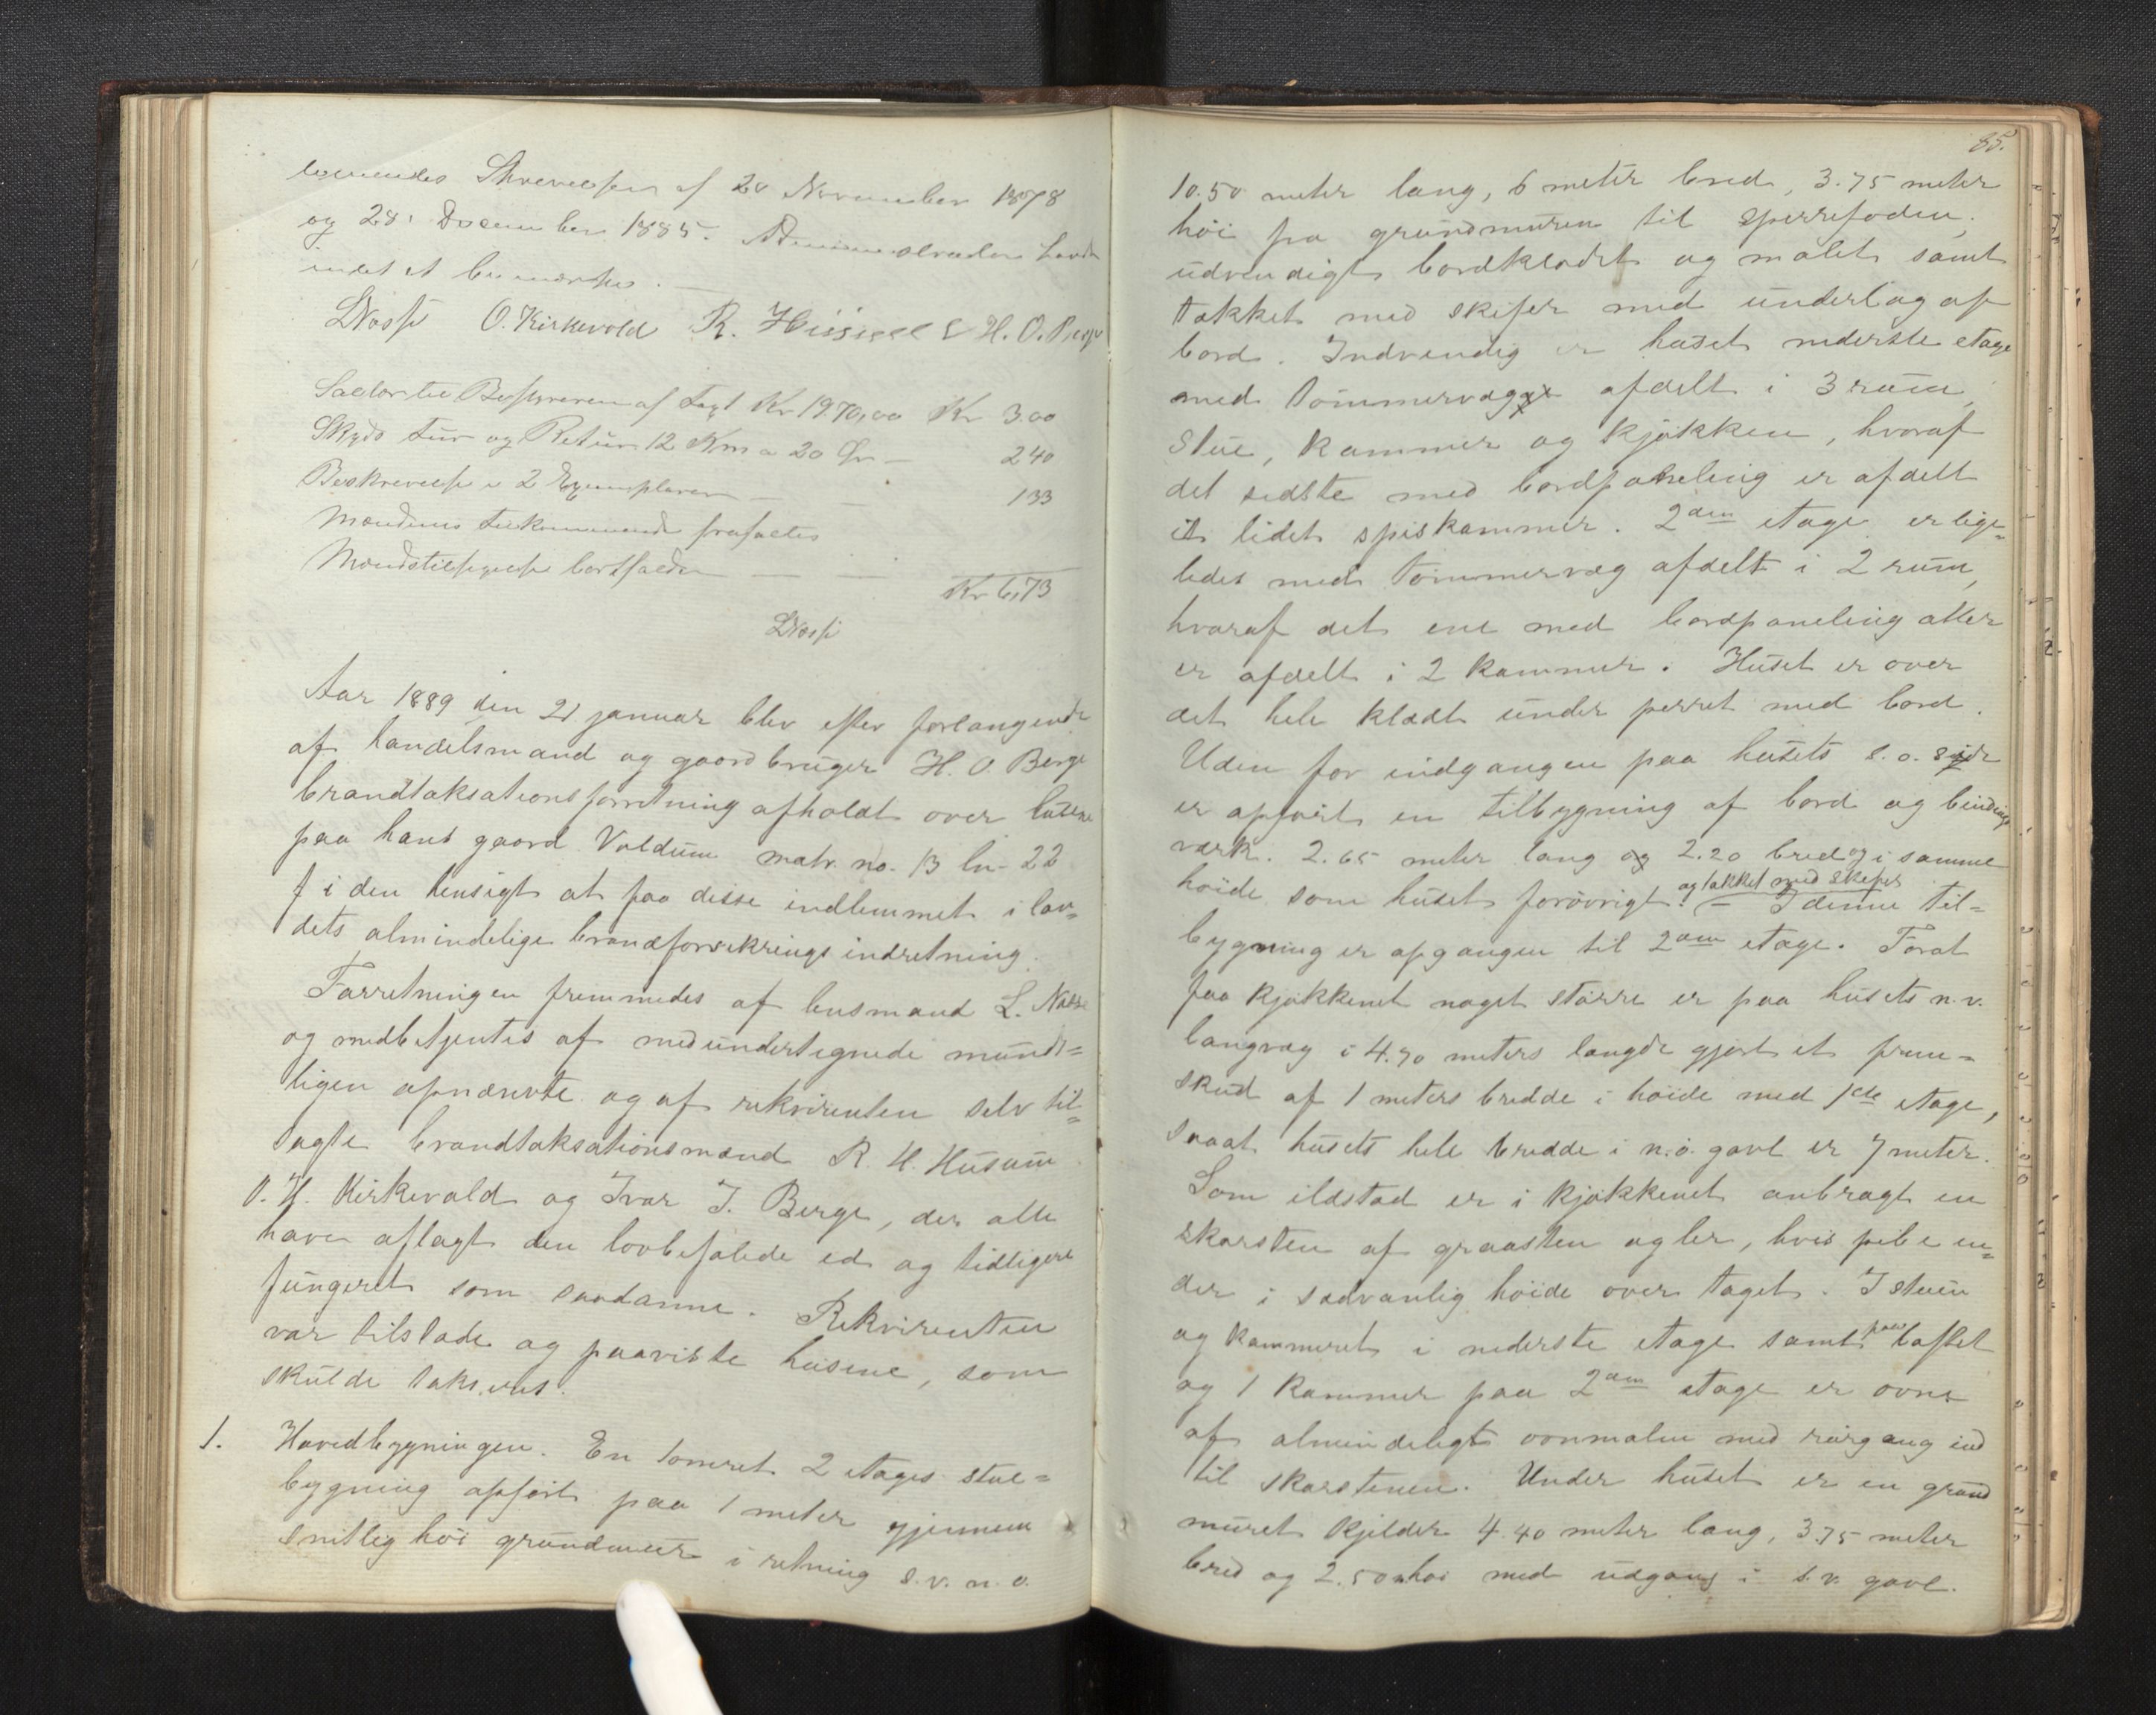 Skrivelser af 20 November 1878
og 28. December 1885.
indet at bemærkes.
LNæsse O. Kirkevold R. Husum H. O. Berge
af taxt Kr 1970,00 Kr 3.00
Skyds tur og Retur 12 Km a 20 Ør - 240
Beskrivelse i 2 Exemplarer - 133
Mændenes tilkommende frafaldes
bortfalder
Kr 6,73
LNæsse
Aar 1889 den 21 januar blev efter forlangende
af handelsmand og gaardbruger H. O. Berge
brandtaksationsforretning afholdt over husene
paa hans gaard Voldum matr. no. 13 ln. 22
f i den hensigt at faa disse indlemmet i lan=
dets almindelige brandforsikringsindretning.
Forretningen fremmedes af lensmand L. Næsse
og medbetjentes af medundertegnede mundt=
ligen opnævnte og af rekvirenten selv til=
sagte brandtaksationsmænd R. H. Husum
O. H. Kirkevold og Ivar J. Berge, der alle
have aflagt den lovbefalede ed og tidligere
fungeret som saadanne. Rekvirenten
var tilstade og paaviste husene, som
skulde takseres.
1. Hovedbygningen. En tømret 2 etages stue=
bygning opført paa 1 meter gjennem
snitlig høi grundmur i retning s.v. n.o.
85.
10.50 meter lang, 6 meter bred, 3.75 meter
høi fra grundmuren til sperrefoden,
udvendigt bordklædt og malet samt
tækket med skifer med underlag af
bord. Indvendig er huset nederste etage
med tømmervæg afdelt i 3 rum,
Stue, kammer og kjøkken, hvoraf
det sidste med bordpaneling er afdelt
et lidet spiskammer. 2den etage er lige=
ledes med tømmervæg afdelt i 2 rum,
hvoraf det ene med bordpaneling atter
er afdelt i 2 kammer. Huset er over
det hele klædt under perret med bord.
Uden for indgangen paa husets s.o. side
er opført en tilbygning af bord og bindings
værk. 2.65 meter lang og 2.20 bred og i samme
høide som huset forøvrigt og tækket med skifer. - I denne til=
bygning er opgangen til 2den etage. For at
faa kjøkkenet noget større er paa husets n.v.
langvæg i 4.70 meters længde gjort et frem=
skud af 1 meters bredde i høide med 1ste etage,
saaat husets hele bredde i n.ø. gavl er 7 meter.
Som ildstad er i kjøkkenet anbragt en
skorsten af graasten og ler, hvis pibe en=
der i sædvanlig høide over taget. I stuen
og kammeret i nederste etage samt paa loftet
og 1 kammer paa 2den etage er ovne
af almindeligt ovnmalm med rørgang ind
til skorstenen. Under huset er en grund
muret kjelder 4.40 meter lang, 3.75 meter
bred og 2.50 m høi med udgang i s.v. gavl.